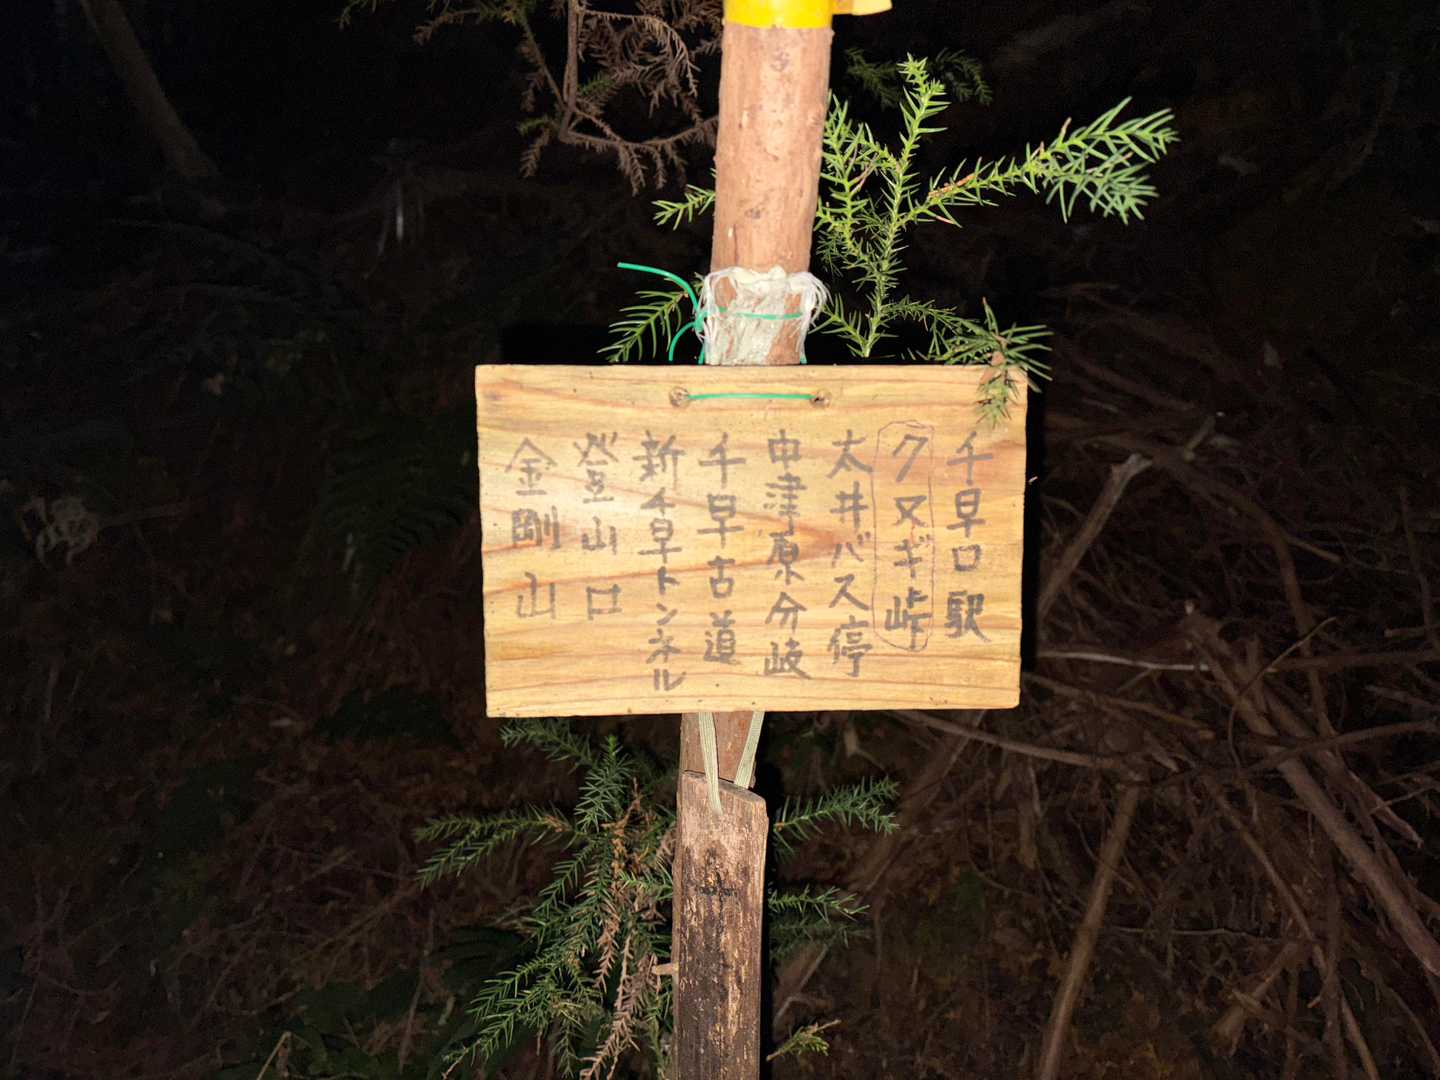 千早口駅
クヌギ峠
太井バス停
中津原分岐
千早古道
新千早トンネル
登山口
金剛山